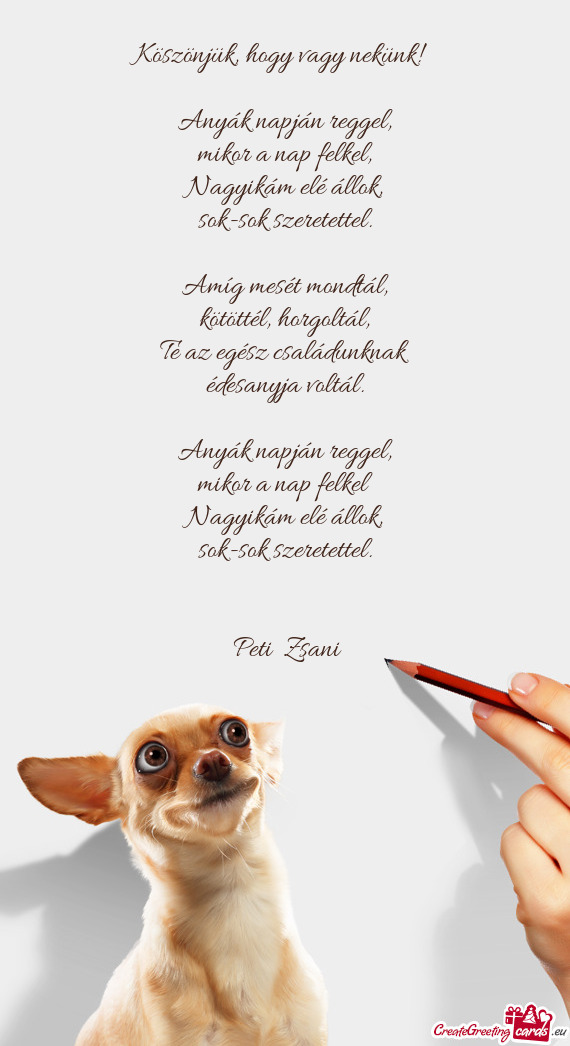 Köszönjük, hogy vagy nekünk!
Anyák napján reggel,
mikor a nap felkel,
Nagyikám elé állok,
sok-sok szeretettel.
Amíg mesét mondtál,
kötöttél, horgoltál,
Te az egész családunknak
édesanyja voltál.
Anyák napján reggel,
mikor a nap felkel
Nagyikám elé állok,
sok-sok szeretettel.
Peti Zsani
CreateGreeting cards .eu